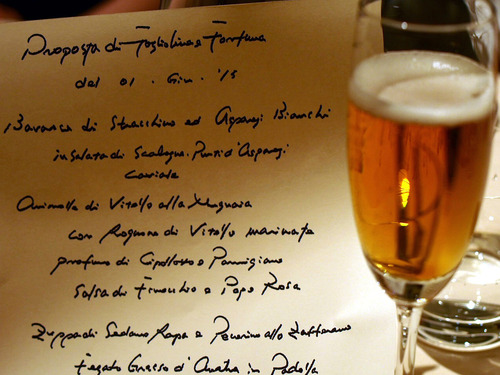 Proposta di Fogliolina e Fortuna
del 01. Giu. '15
Bavarese di Stracchino ed Asparagi Bianchi
insalata di Scalogno. Punti d'Asparagi
Caviale
Animella di Vitello alla
con Rognone di Vitello marinato
profumo di Cipollotto e Parmigiano
Salsa di Finocchio e Pepe Rosa
Zuppa di Sedano Rapa e Peperino allo Zafferano
Fegato Grasso d'Anatra in Padella